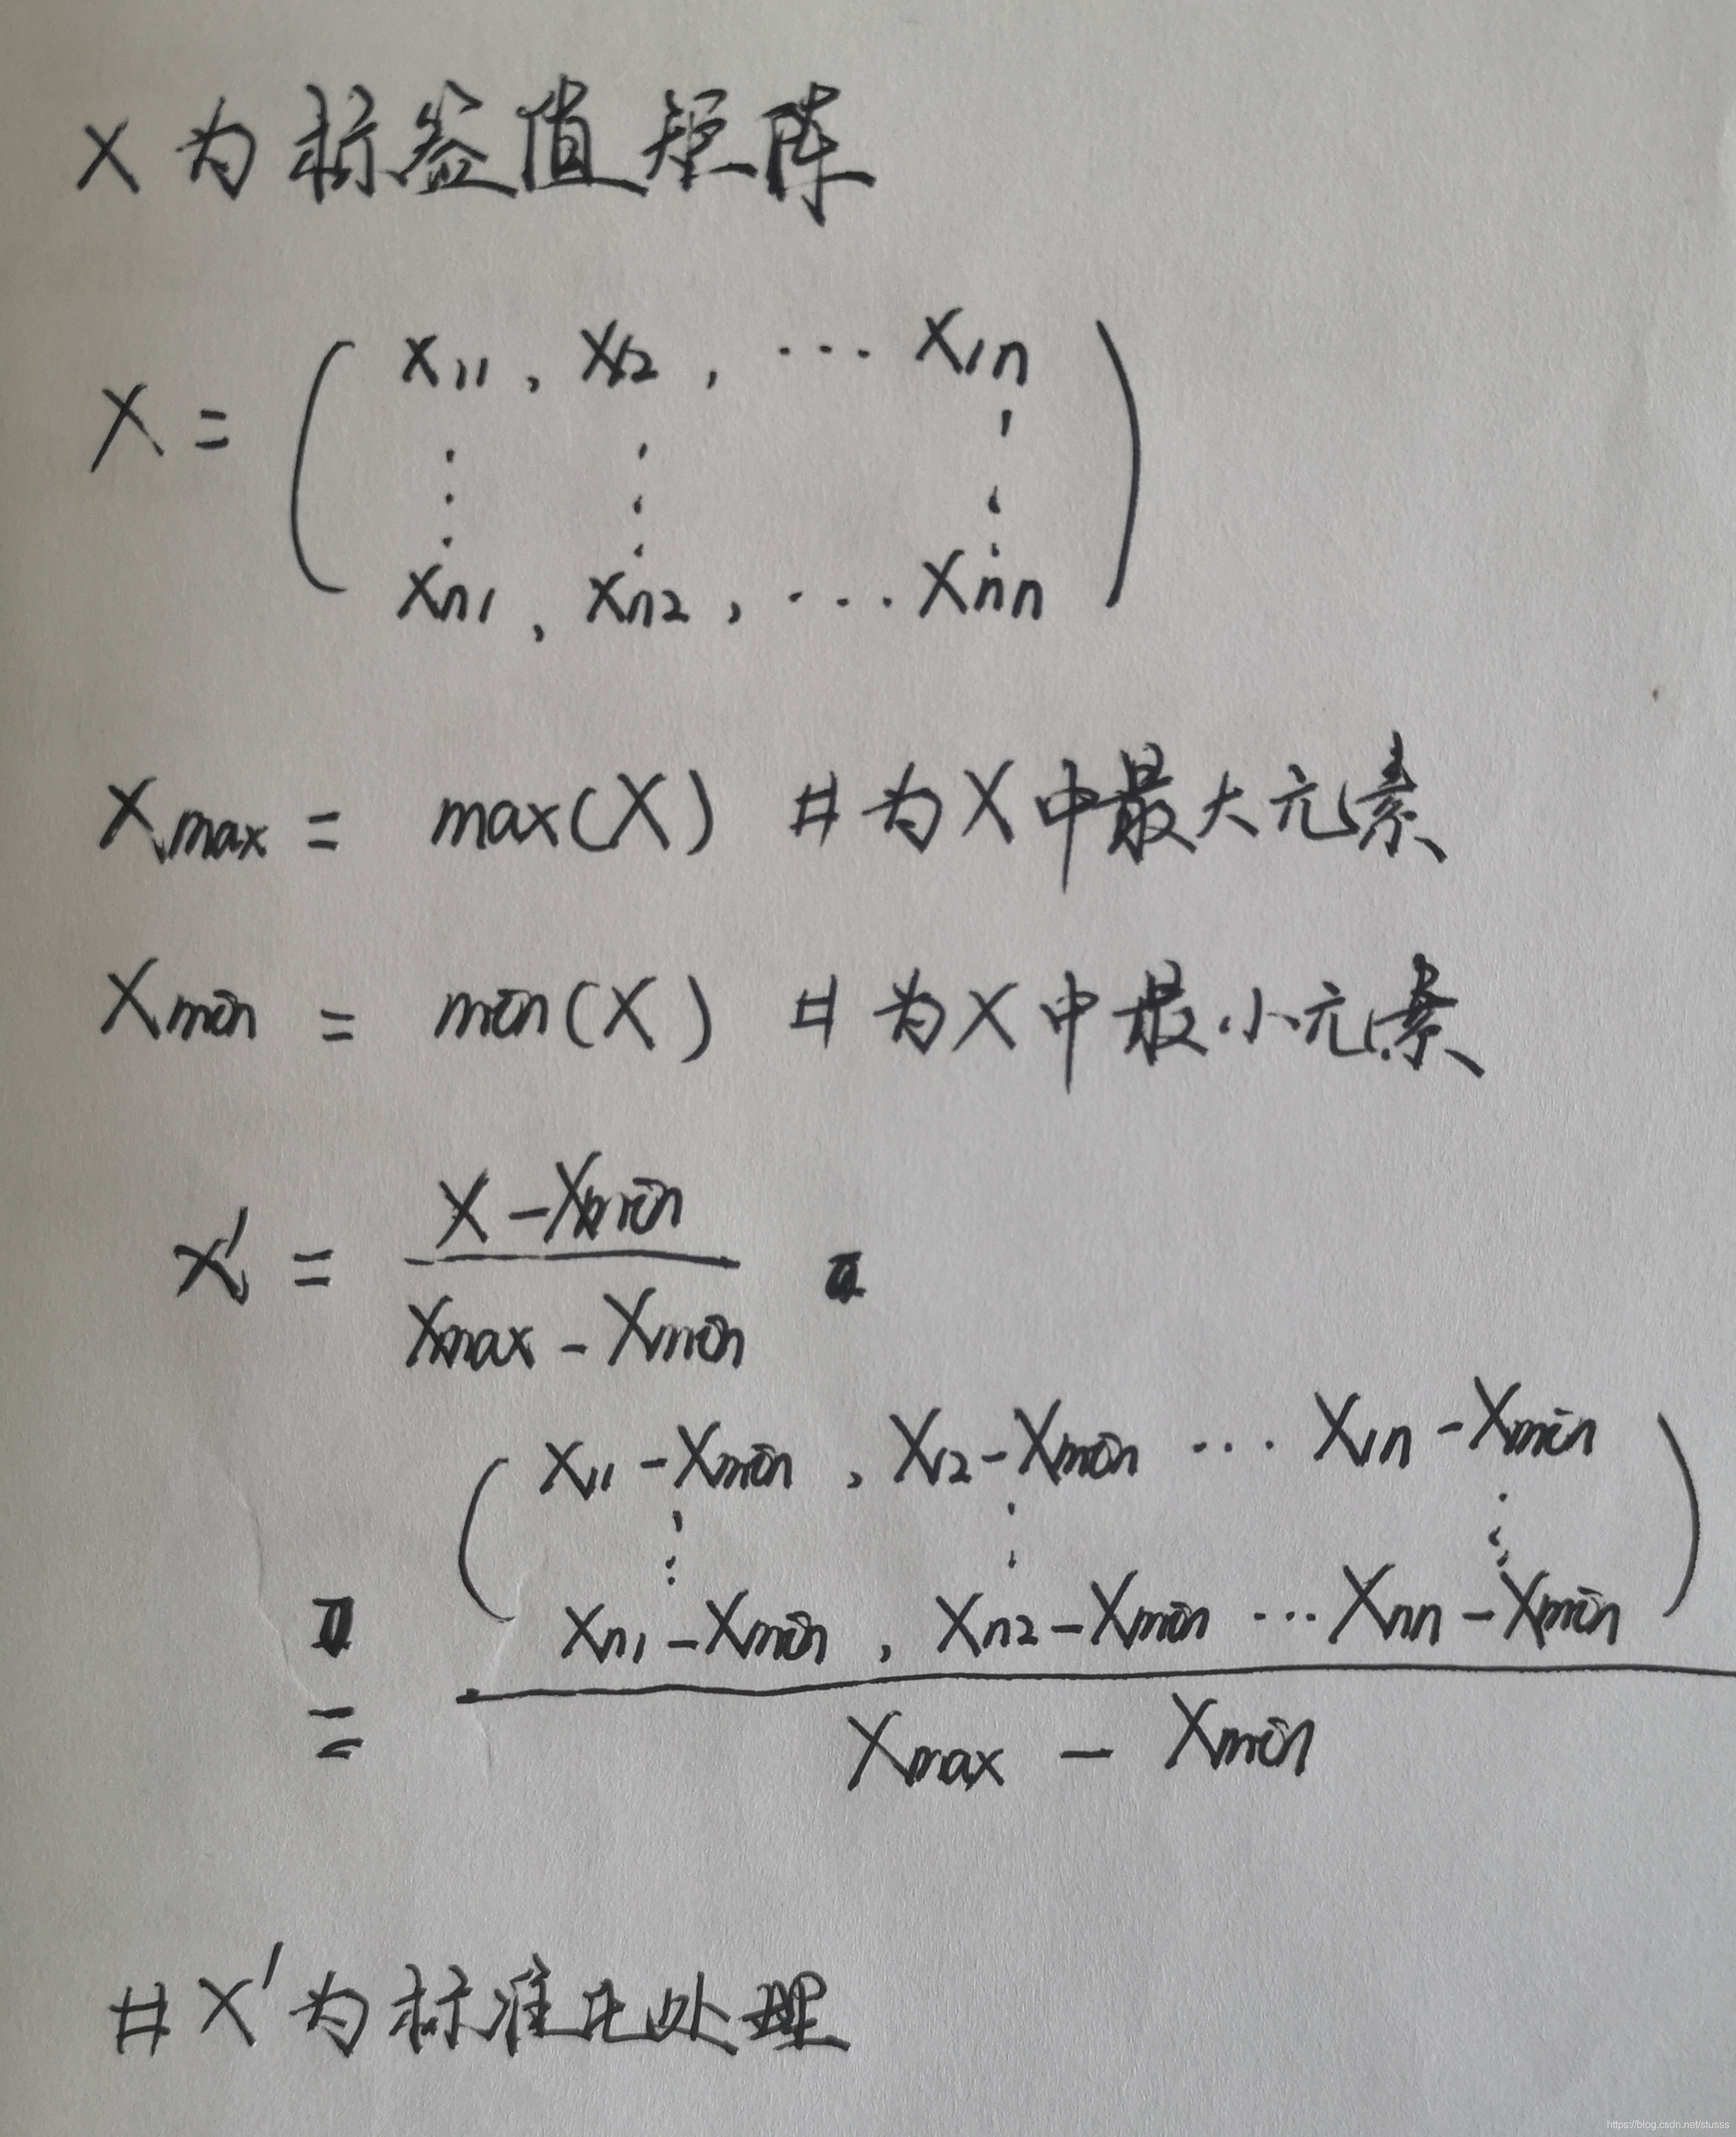 X为标签值矩阵
X = ( x11 , x12 , ... x1n
⋮ ⋮ ⋮
xn1 , xn2 , ... xnn )
Xmax = max(X) #为X中最大元素
Xmin = min(X) #为X中最小元素
X' = (X - Xmin) / (Xmax - Xmin)
= ( X11 - Xmin , X12 - Xmin ... X1n - Xmin
⋮ ⋮ ⋮
Xn1 - Xmin , Xn2 - Xmin ... Xnn - Xmin ) / (
Xmax - Xmin )
#X'为标准化处理
https://blog.csdn.net/stusss